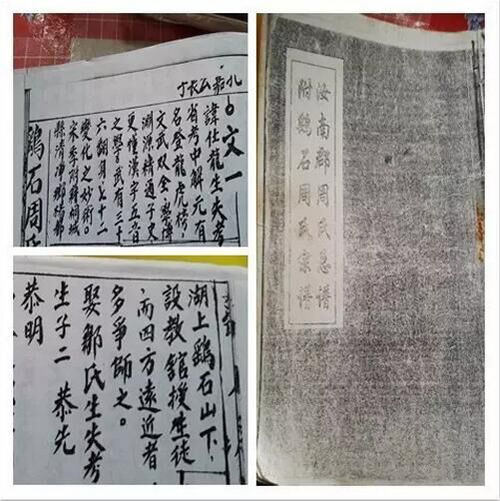 文一
諱仕龍生失考
省考中解元有
名登龍虎榜
文武双全
溯源精通子史
更懂漢字五音
之學 武有三十
六翻身七十二
變化之妙術。
宋季
縣清淨鄉
鷄石周氏
湖上鷄石山下,
設教館授生徒
而四方遠近者,
多爭師之。
娶鄒氏生失考
生子二 恭先
恭明
汝南郡周氏總譜
附鷄石周氏宗譜